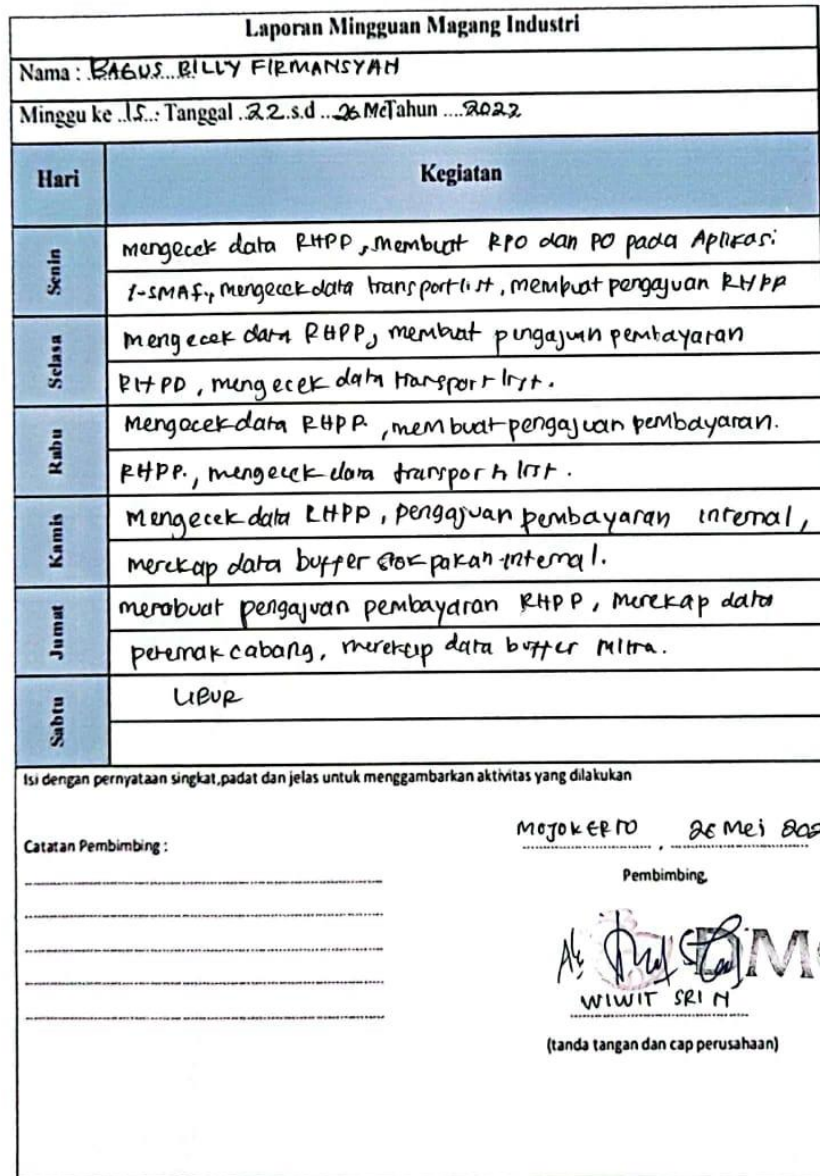 Laporan Mingguan Magang Industri
Nama : BAGUS BILLY FIRMANSYAH
Minggu ke ..15..: Tanggal ..22.s.d ...26 MeTahun ....2022
Hari Kegiatan
Senin
mengecek data RHPP, membuat RPO dan PO pada Aplikasi
1-SMAF., mengecek data transport list, membuat pengajuan RHPP
Selasa
mengecek data RHPP, membuat pengajuan pembayaran
RHPP, mengecek data transport list.
Rabu
Mengecek data RHPP, membuat pengajuan pembayaran.
RHPP., mengecek data transport list.
Kamis
Mengecek data RHPP, pengajuan pembayaran internal,
merekap data buffer stok pakan internal.
Jumat
membuat pengajuan pembayaran RHPP, merekap data
peternak cabang, merekap data buffer mitra.
Sabtu
LIBUR
Isi dengan pernyataan singkat,padat dan jelas untuk menggambarkan aktivitas yang dilakukan
MOJOKERTO , 26 Mei 202
Catatan Pembimbing :
Pembimbing,
WIWIT SRI N
(tanda tangan dan cap perusahaan)